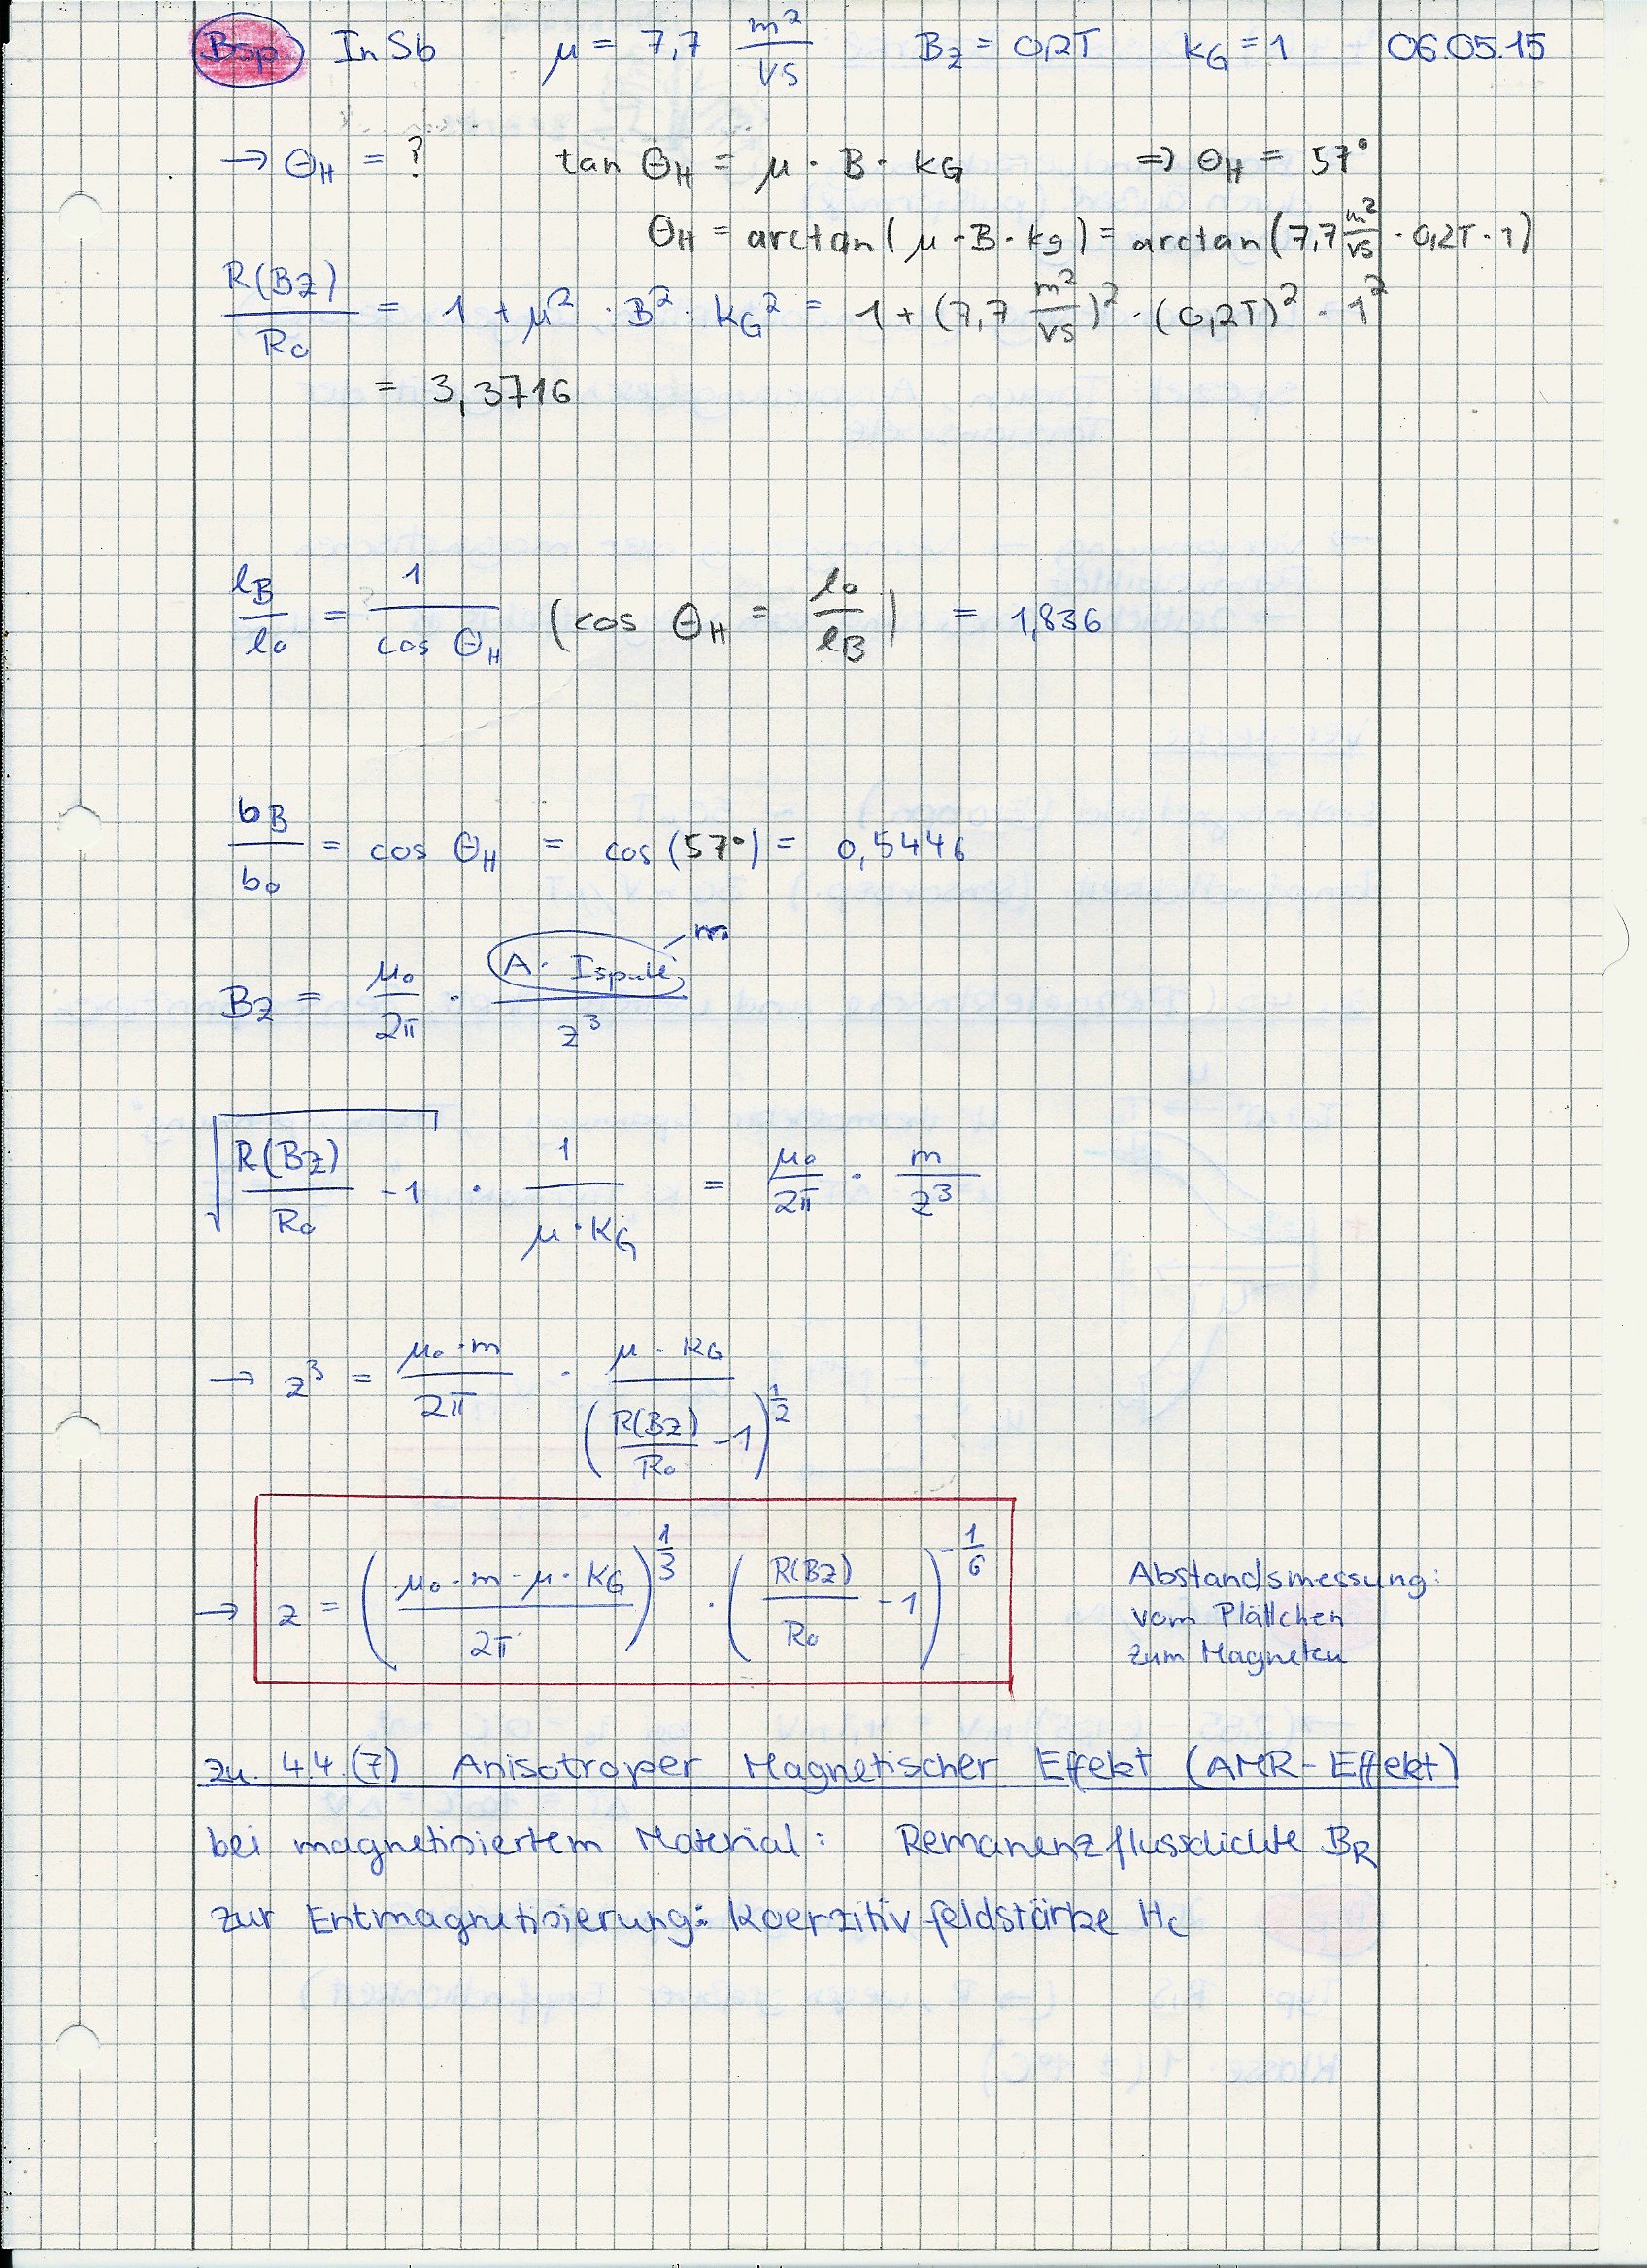 Bsp InSb μ = 7,7 m²/Vs B_z = 0,2T k_G = 1 06.05.15
→ Θ_H = ? tan Θ_H = μ · B · k_G ⇒ Θ_H = 57°
Θ_H = arctan(μ · B · k_g) = arctan(7,7 m²/Vs · 0,2T · 1)
R(B_z)/R_0 = 1 + μ² · B² · k_G² = 1 + (7,7 m²/Vs)² · (0,2T)² · 1²
= 3,3716
l_B/l_0 = 1/cos Θ_H (cos Θ_H = l_0/l_B) = 1,836
b_B/b_0 = cos Θ_H = cos(57°) = 0,5446
B_z = μ_0/2π · A · I_Spule/z³ m
√(R(B_z)/R_0 - 1) · 1/(μ · k_G) = μ_0/2π · m/z³
→ z³ = (μ_0 · m)/2π · (μ · k_G)/(R(B_z)/R_0 - 1)^(1/2)
→ z = ((μ_0 · m · μ · k_G)/2π)^(1/3) · (R(B_z)/R_0 - 1)^(-1/6)
Abstandsmessung:
vom Plättchen
zum Magneten
zu. 4.4.(7) Anisotroper Magnetischer Effekt (AMR-Effekt)
bei magnetisiertem Material: Remanenzflussdichte B_R
zur Entmagnetisierung: Koerzitivfeldstärke H_c